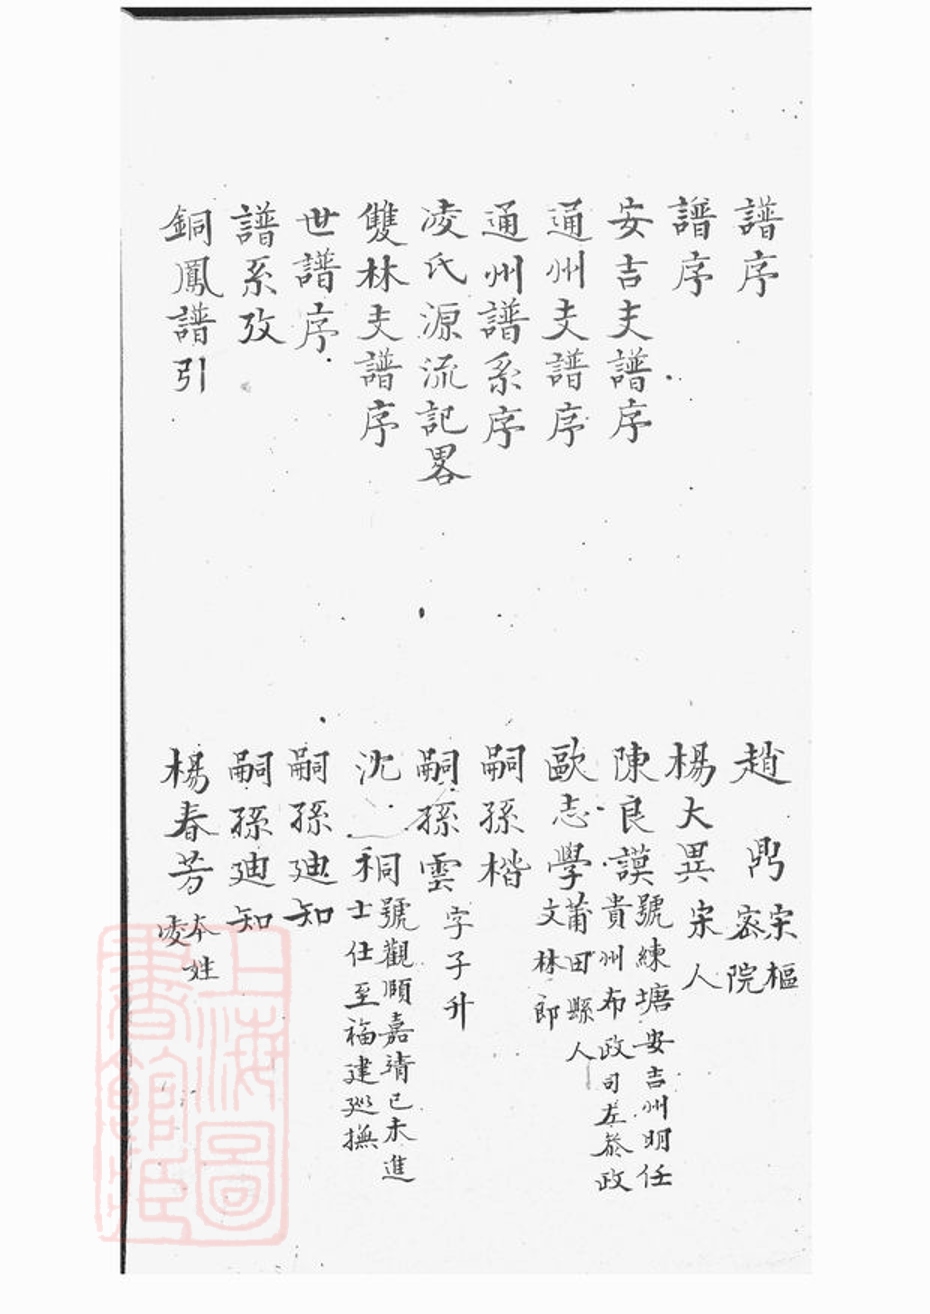 譜序　趙鼎宋樞密院
譜序　楊大異宋人
安吉支譜序　陳良謨號練塘安吉州明任貴州布政司左叅政
通州支譜序　歐志學莆田縣人文林郎
通州譜系序　嗣孫楷
凌氏源流記畧　嗣孫雲字子升
雙林支譜序　沈桐號觀頤嘉靖己未進士仕至福建巡撫
世譜序　嗣孫廸知
譜系攷　嗣孫廸知
銅鳳譜引　楊春芳本姓凌
上海圖書館藏